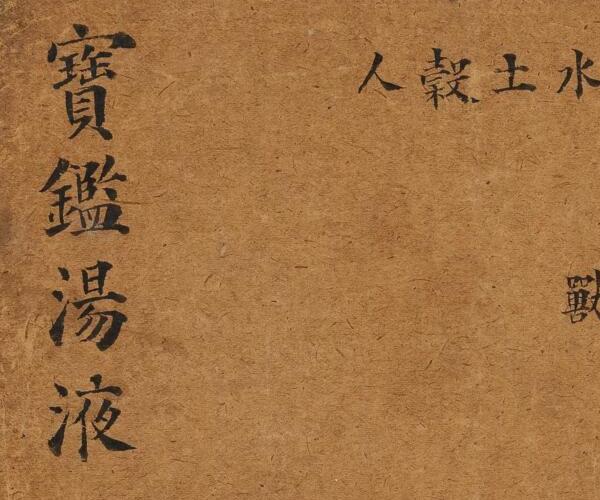 寶鑑湯液
水土穀人
獸